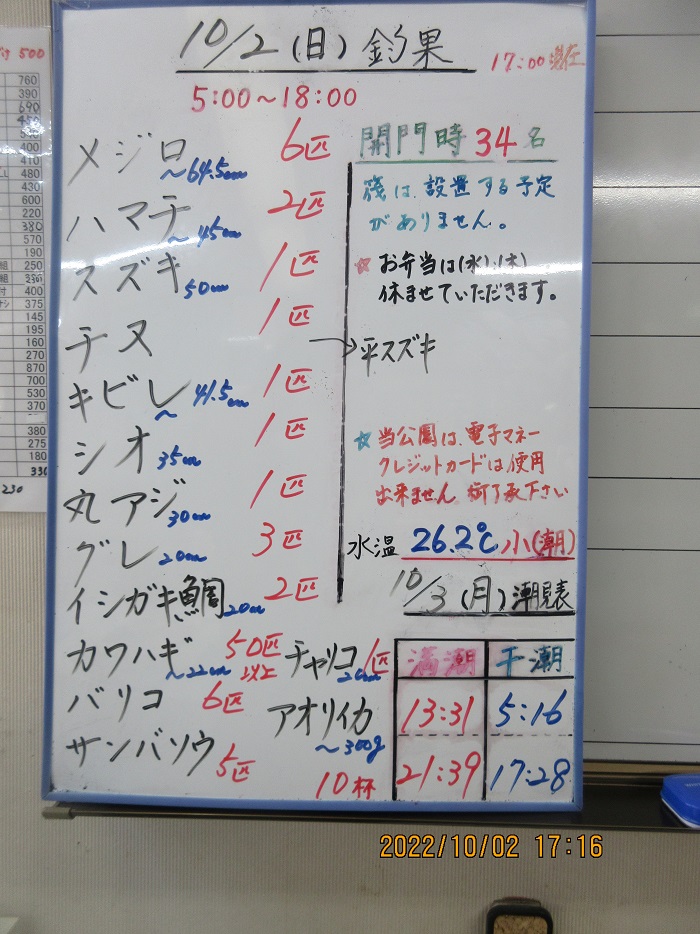 10/2(日)釣果
17:00現在
5:00～18:00
メジロ ～64.5cm 6匹
ハマチ ～45cm 2匹
スズキ 50cm 1匹
チヌ 1匹
キビレ ～41.5cm 1匹
シオ 35cm 1匹
丸アジ 30cm 1匹
グレ 20cm 3匹
イシガキ鯛 20cm 2匹
カワハギ ～22cm 50匹以上
バリコ 6匹
サンバソウ 5匹
開門時34名
筏は、設置する予定
がありません。
☆お弁当は(水)、(木)
休ませていただきます。
→平スズキ
☆当公園は、電子マネー
クレジットカードは使用
出来ません 御了承下さい
水温 26.2℃ 小(潮)
10/3(月)潮見表
チャリコ 20cm 1匹
アオリイカ
～300g
10杯
満潮 干潮
13:31 5:16
21:39 17:28
500
760
390
690
400
410
480
430
600
220
380
570
190
組 250
400
375
145
195
160
270
870
700
530
370
380
275
180
330
230
2022/10/02 17:16